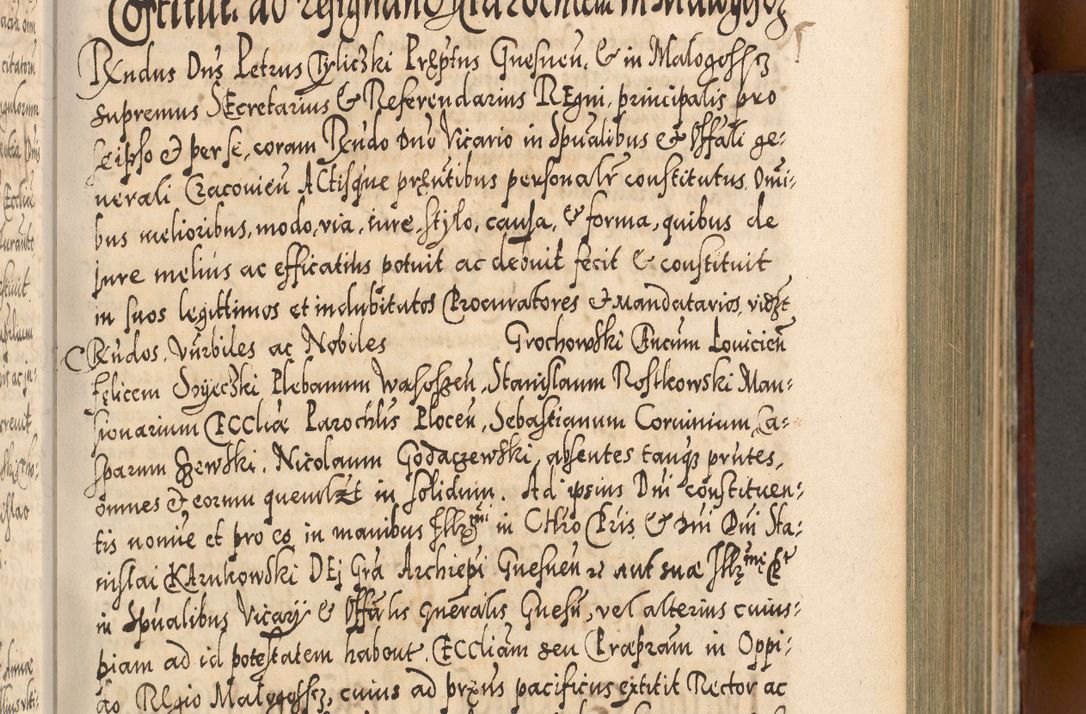 Constitut: ad resignand Parochiam in Malogosz
Rndus Dns Petrus Tyliczki Pręptus Gnesnen. & in Malogossz
supremus SEcretarius & Referendarius REgni, principalis pro
seipso & per se, coram Rndo Dno Vicario in Spualibus & Offali ge-
nerali Cracovien ACtisque prntibus personalr constitutus, Omi-
bus melioribus, modo, via, iure, stylo, causa, & forma, quibus de
jure melius ac efficatius potuit ac debuit fecit & constituit
in suos legittimos et indubitatos Procuratores & Mandatarios, vidzt
Rndos, Vnrbiles ac Nobiles Grochowski Cncum Lovicien
felicem Plebanum Wasoszen, Stanislaum Rostkowski Man-
sionarium ECCliæ Parochlis Plocen, Sebastianum Corvinium Ca-
sparum Nicolaum Godaczewski, absentes tanq prntes,
omnes & eorum quemlzt in solidum. Ad ipsius Dni constituen-
tis nomine et pro eo in manibus Illmi in CHro Pris & Dni Dni Sta-
nislai KArnkowski DEj Gra Archiepi Gnesnen aut suæ Illmę
in Spualibus Vicarij & Offalis Gneralis Gnesn, vel alterius cuius-
piam ad id potestatem habent, ECCliam seu Præpram in Oppi-
do REgio Malogossz, cuius ad pręns pacificus extitit Rector ac